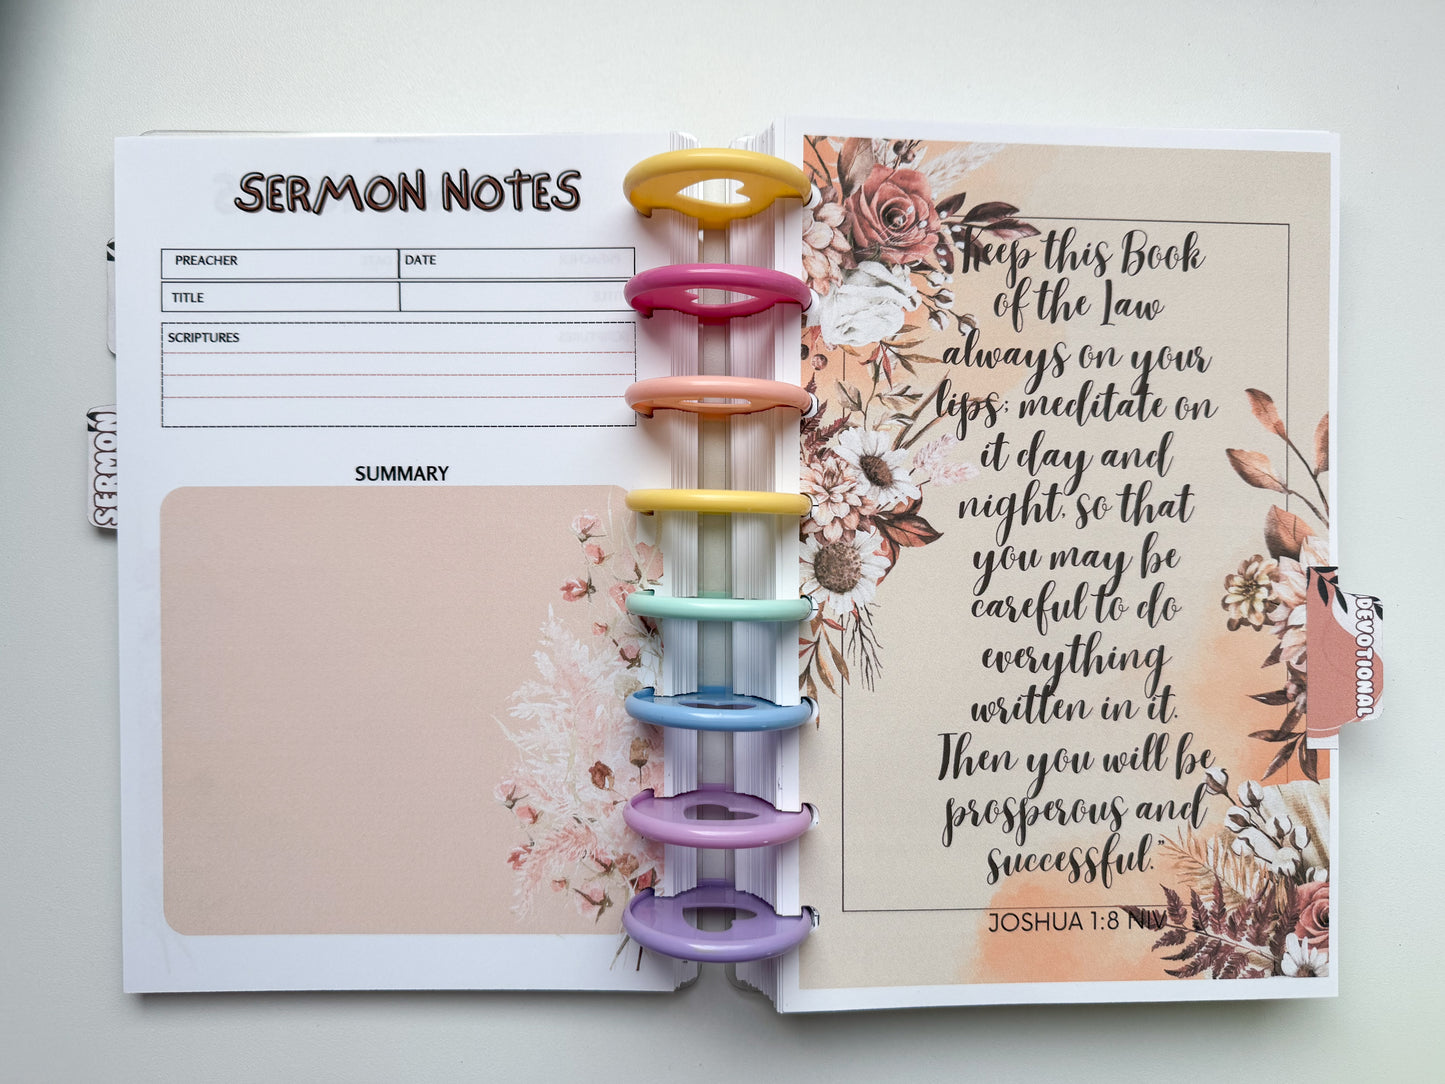 SERMON NOTES
PREACHER DATE
TITLE
SCRIPTURES
SUMMARY
SERMON
Keep this Book
of the Law
always on your
lips; meditate on
it day and
night, so that
you may be
careful to do
everything
written in it.
Then you will be
prosperous and
successful."
JOSHUA 1:8 NIV
DEVOTIONAL